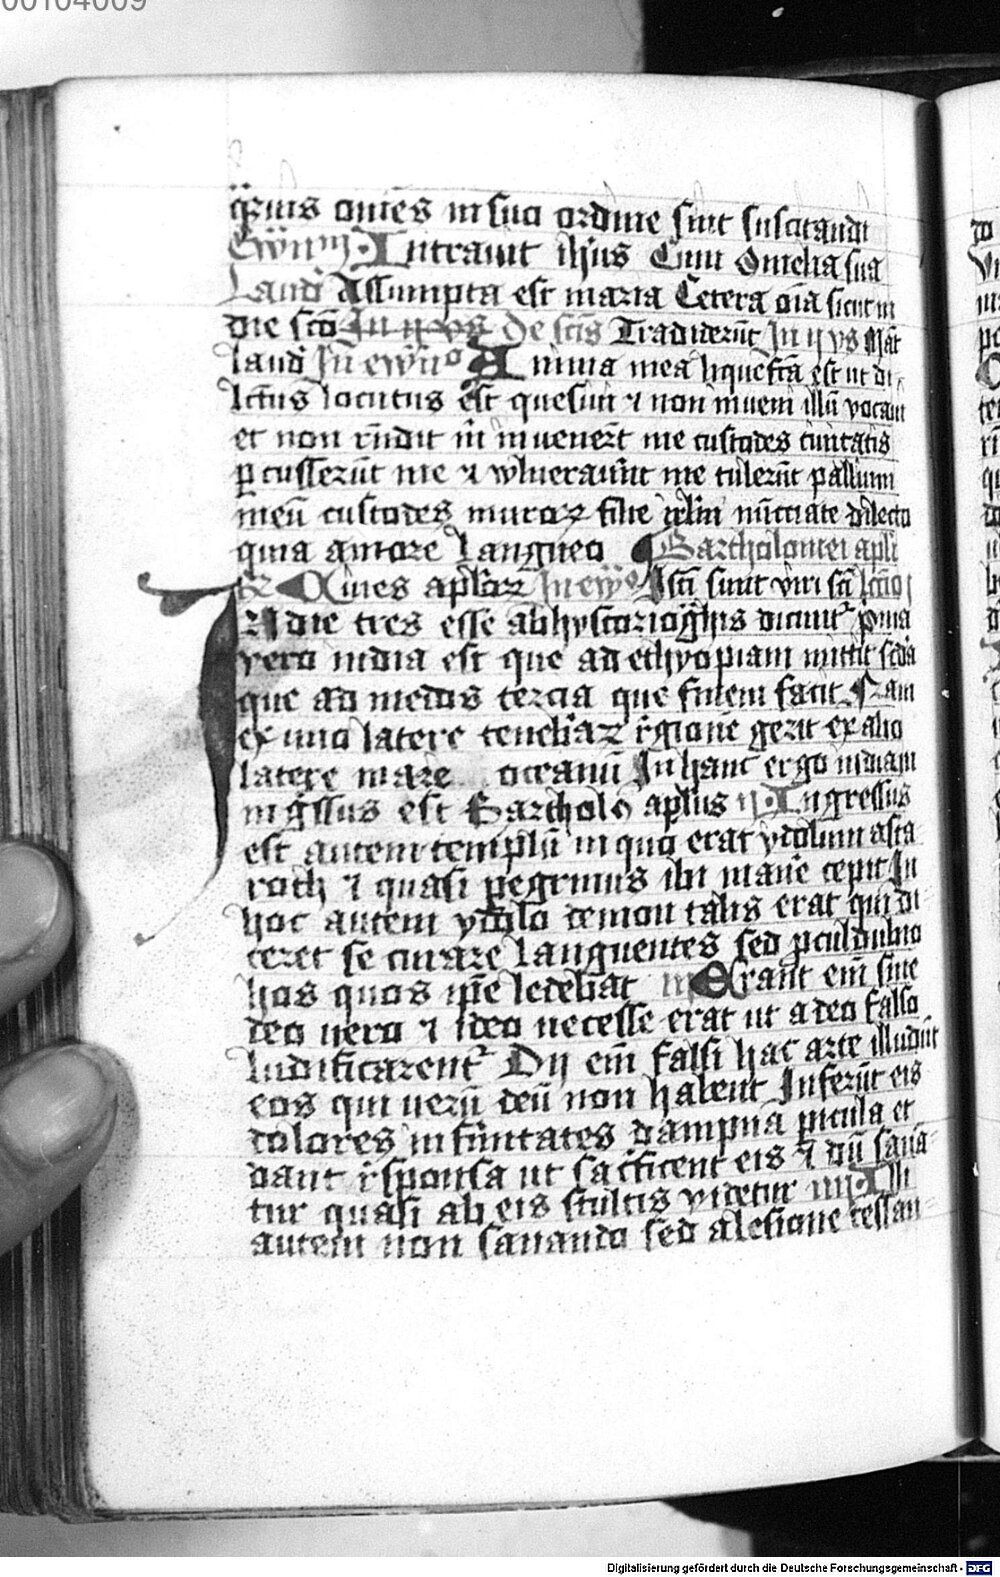 00104009
omēs in suo ordine sint suscitandi
Intrauit ihūs Cum Omelia sua
Laud Assumpta est maria Cetera oīa sicut in
die scō In nͦ nͦys De scīs Tradiderūt In
laud In ewāͦ Anima mea liquefcā est ut di
lctūs locutus est quesiui ⁊ non inueni illū vocaui
et non rn̄dit m̄ inuenerūt me custodes ciuitatis
ꝑcusserūt me ⁊ wlnerauūt me tulerūt pallium
meū custodes muroꝝ filie nūcciate dilecto
quia amore langueo Bartholomei apli
Ciues aploꝝ In ewͦ Isti sunt viri scī
Indie tres esse ab hystoriogͣphis dicunt᷑ pͥma
vero india est que ad ethyopiam mittit scda
que ad medos tercia que finem facit Nam
ex uno latere tenebraꝝ rͤgione gerit ex alio
latere mare oceanū In hanc ergo indiam
ingͤssus est Bartholoͦ aplus ij Ingressus
est autem templū in quo erat ydolum asta
roth ⁊ quasi pegrinus ibi manē cepit In
hoc autem ydolo demon talis erat qui di
ceret se curare languentes sed ꝑculdubio
hos quos ip̄e ledebat iij Erant em̄ sine
deo uero ⁊ ideo necesse erat ut a deo falso
ludificarent᷑ Dij em̄ falsi hac arte illudūt
eos qui uerū deū non habent Inferūt eis
dolores infirmitates dampna picula et
dant rͤsponsa ut sacͥficent eis ⁊ dū sana
tur quasi ab eis stultis videtur iiij Illi
autem non sanando sed a lesione cessan
Digitalisierung gefördert durch die Deutsche Forschungsgemeinschaft - DFG